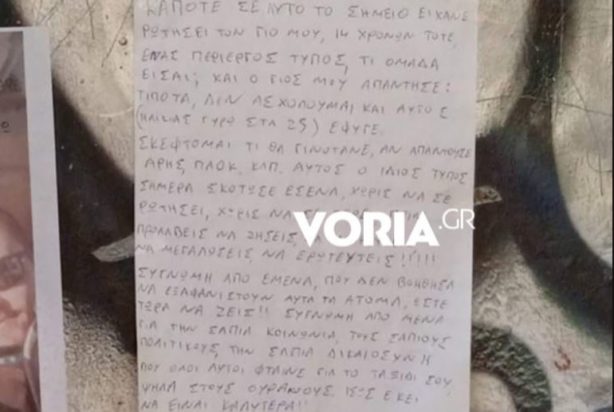 ΚΑΠΟΤΕ ΣΕ ΑΥΤΟ ΤΟ ΣΗΜΕΙΟ ΕΙΧΑΝΕ
ΡΩΤΗΣΕΙ ΤΟΝ ΓΙΟ ΜΟΥ, 14 ΧΡΟΝΩΝ ΤΟΤΕ,
ΕΝΑΣ ΠΕΡΙΕΡΓΟΣ ΤΥΠΟΣ, ΤΙ ΟΜΑΔΑ
ΕΙΣΑΙ; ΚΑΙ Ο ΓΙΟΣ ΜΟΥ ΑΠΑΝΤΗΣΕ:
ΤΙΠΟΤΑ, ΔΕΝ ΑΣΧΟΛΟΥΜΑΙ ΚΑΙ ΑΥΤΟΣ
(ΗΛΙΚΙΑΣ ΓΥΡΩ ΣΤΑ 25) ΕΦΥΓΕ.
ΣΚΕΦΤΟΜΑΙ ΤΙ ΘΑ ΓΙΝΟΤΑΝΕ, ΑΝ ΑΠΑΝΤΟΥΣΕ
ΑΡΗΣ, ΠΑΟΚ. ΚΛΠ. ΑΥΤΟΣ Ο ΙΔΙΟΣ ΤΥΠΟΣ
ΣΗΜΕΡΑ ΣΚΟΤΩΣΕ ΕΣΕΝΑ, ΧΩΡΙΣ ΝΑ ΣΕ
ΡΩΤΗΣΕΙ, ΧΩΡΙΣ ΝΑ
VORIA.GR
ΠΡΟΛΑΒΕΙΣ ΝΑ ΖΗΣΕΙΣ,
ΝΑ ΜΕΓΑΛΩΣΕΙΣ ΝΑ ΕΡΩΤΕΥΤΕΙΣ!!!!!
ΣΥΓΝΩΜΗ ΑΠΟ ΕΜΕΝΑ, ΠΟΥ ΔΕΝ ΒΟΗΘΗΣΑ
ΝΑ ΕΞΑΦΑΝΙΣΤΟΥΝ ΑΥΤΑ ΤΑ ΑΤΟΜΑ, ΩΣΤΕ
ΤΩΡΑ ΝΑ ΖΕΙΣ!! ΣΥΓΝΩΜΗ ΑΠΟ ΜΕΝΑ
ΓΙΑ ΤΗΝ ΣΑΠΙΑ ΚΟΙΝΩΝΙΑ, ΤΟΥΣ ΣΑΠΙΟΥΣ
ΠΟΛΙΤΙΚΟΥΣ, ΤΗΝ ΣΑΠΙΑ ΔΙΚΑΙΟΣΥΝΗ
ΠΟΥ ΟΛΟΙ ΑΥΤΟΙ ΦΤΑΙΝΕ ΓΙΑ ΤΟ ΤΑΞΙΔΙ ΣΟΥ
ΨΗΛΑ ΣΤΟΥΣ ΟΥΡΑΝΟΥΣ. ΙΣΩΣ ΕΚΕΙ
ΝΑ ΕΙΝΑΙ ΚΑΛΥΤΕΡΑ!!